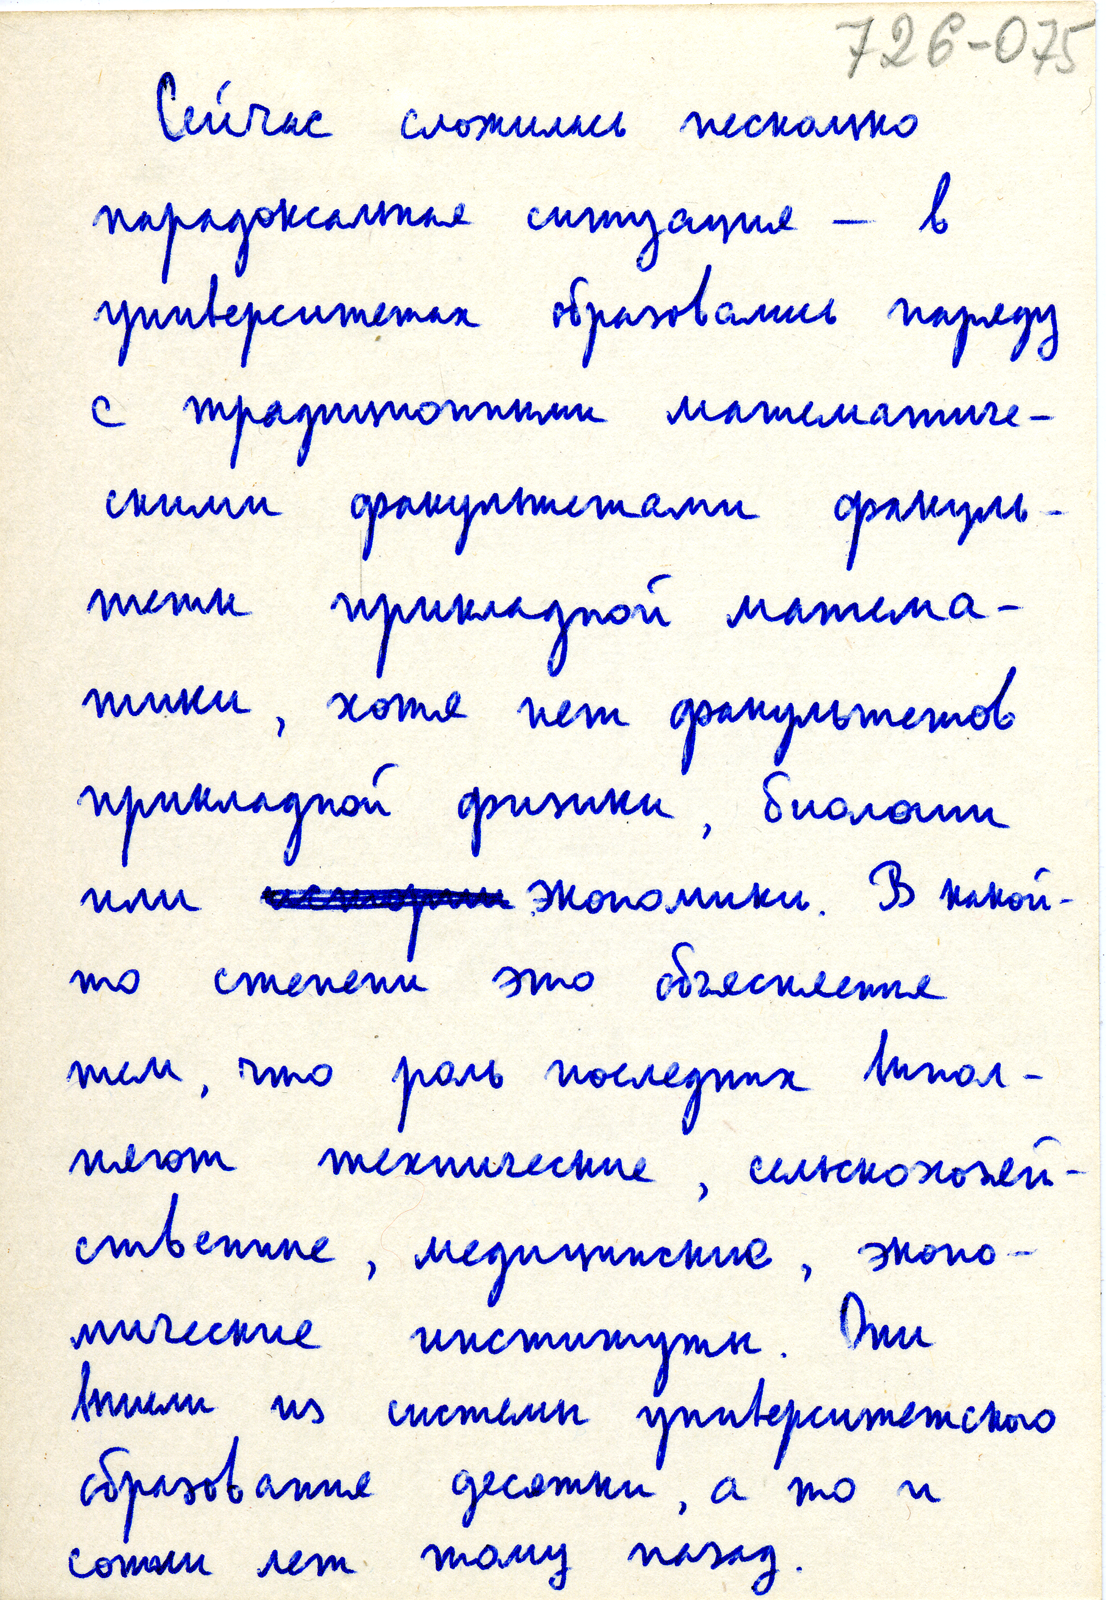 726-075
Сейчас сложилась несколько
парадоксальная ситуация — в
университетах образовались наряду
с традиционными математиче-
скими факультетами факуль-
теты прикладной матема-
тики, хотя нет факультетов
прикладной физики, биологии
или истории экономики. В какой-
то степени это объясняется
тем, что роль последних выпол-
няют технические, сельскохозяй-
ственные, медицинские, эконо-
мические институты. Они
вышли из системы университетского
образования десятки, а то и
сотни лет тому назад.